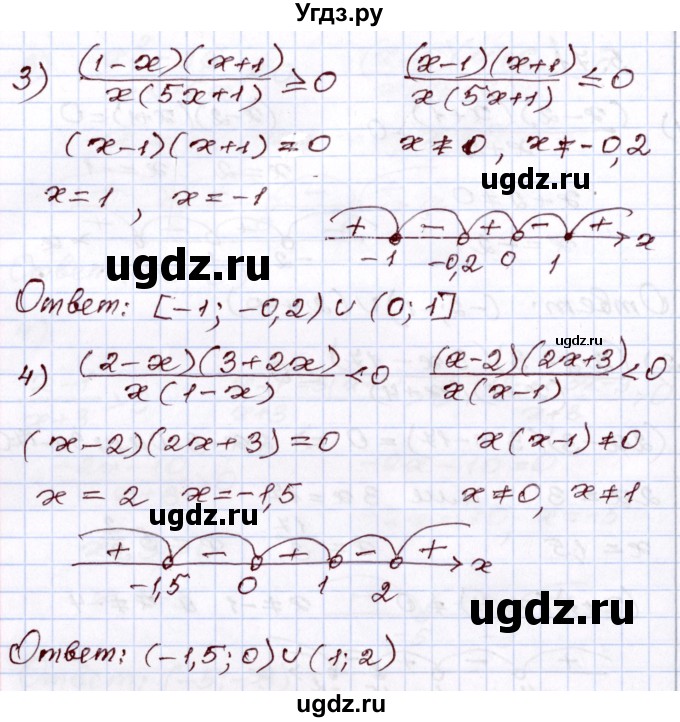 Угдз.ру
3) (1-x)(x+1)/x(5x+1) ≥ 0   (x-1)(x+1)/x(5x+1) ≤ 0
(x-1)(x+1) = 0   x ≠ 0, x ≠ -0,2
ugdz.ru
x = 1, x = -1
+ - + - + x
-1 -0,2 0 1
ugdz.ru
Ответ: [-1; -0,2) ∪ (0; 1]
ugdz.ru
4) (2-x)(3+2x)/x(1-x) < 0   (x-2)(2x+3)/x(x-1) < 0
(x-2)(2x+3) = 0   x(x-1) ≠ 0
x = 2   x = -1,5   x ≠ 0, x ≠ 1
ugdz.ru
+ - + - + x
-1,5 0 1 2
ugdz.ru
ugdz.ru
Ответ: (-1,5; 0) ∪ (1; 2)
ugdz.ru